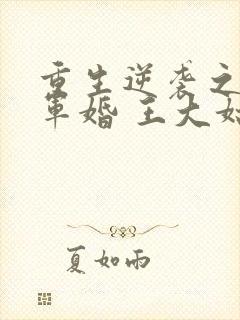 重生逆袭之
军婚 王大姑
夏如雨